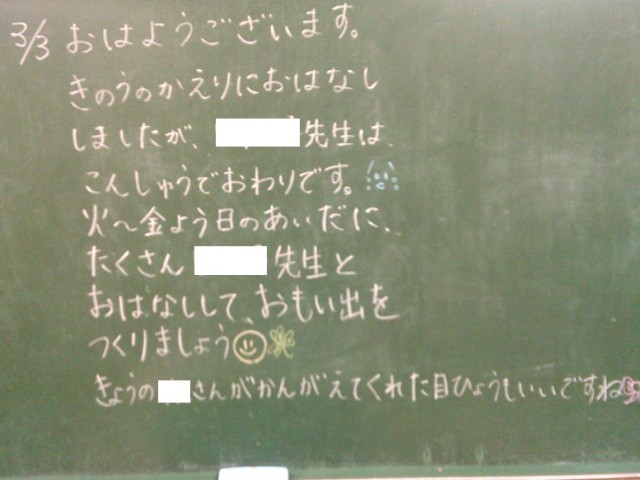 3/3 おはようございます。
きのうのかえりにおはなし
しましたが、先生は、
こんしゅうでおわりです。
火〜金よう日のあいだに、
たくさん 先生と
おはなしして、おもい出を
つくりましょう
きょうの さんがかんがえてくれた目ひょうもいいですね